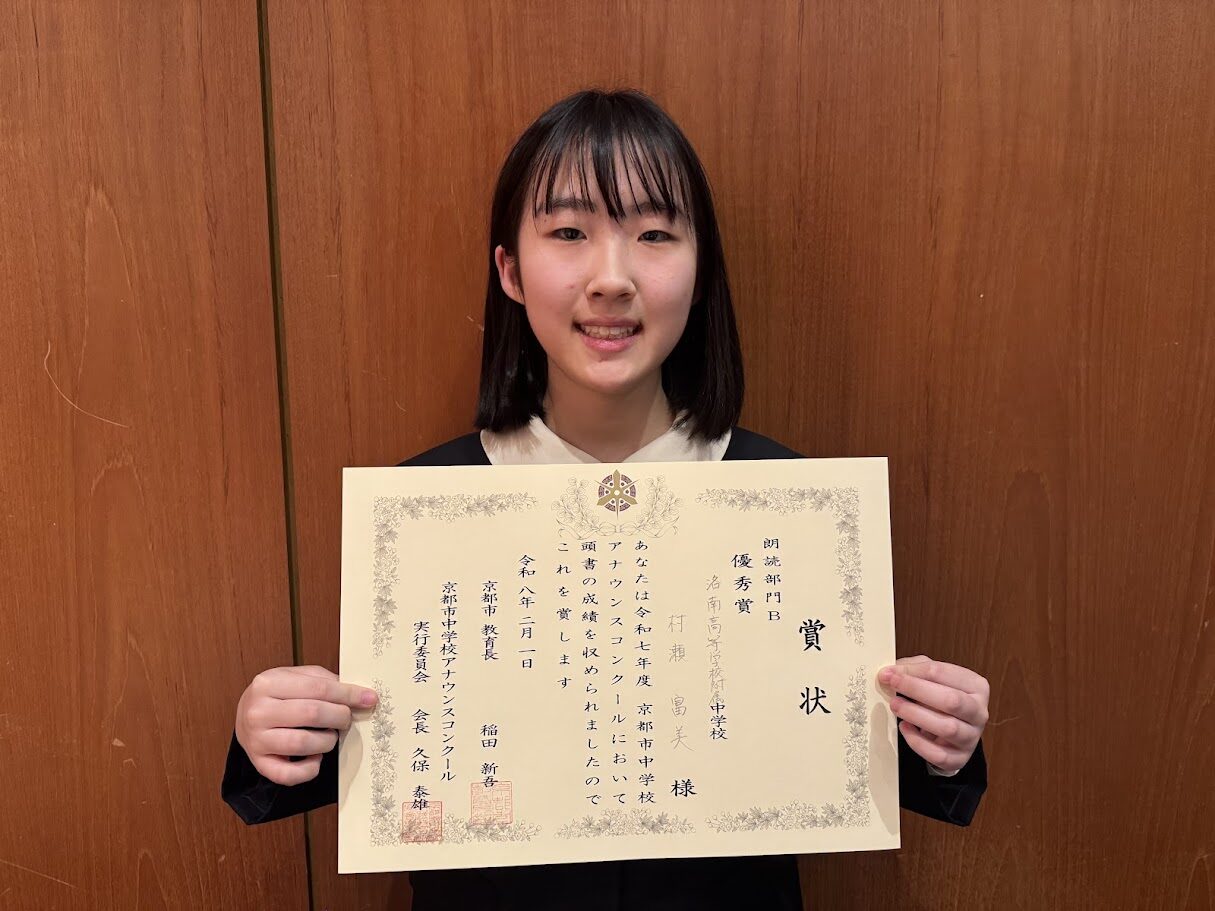 賞状
朗読部門B
優秀賞
洛南高等学校附属中学校
村瀬 富美 様
あなたは令和七年度 京都市中学校
アナウンスコンクールにおいて
頭書の成績を収められましたので
これを賞します
令和八年 二月 一日
京都市 教育長 稲田 新吾
京都市中学校アナウンスコンクール
実行委員会 会長 久保 泰雄